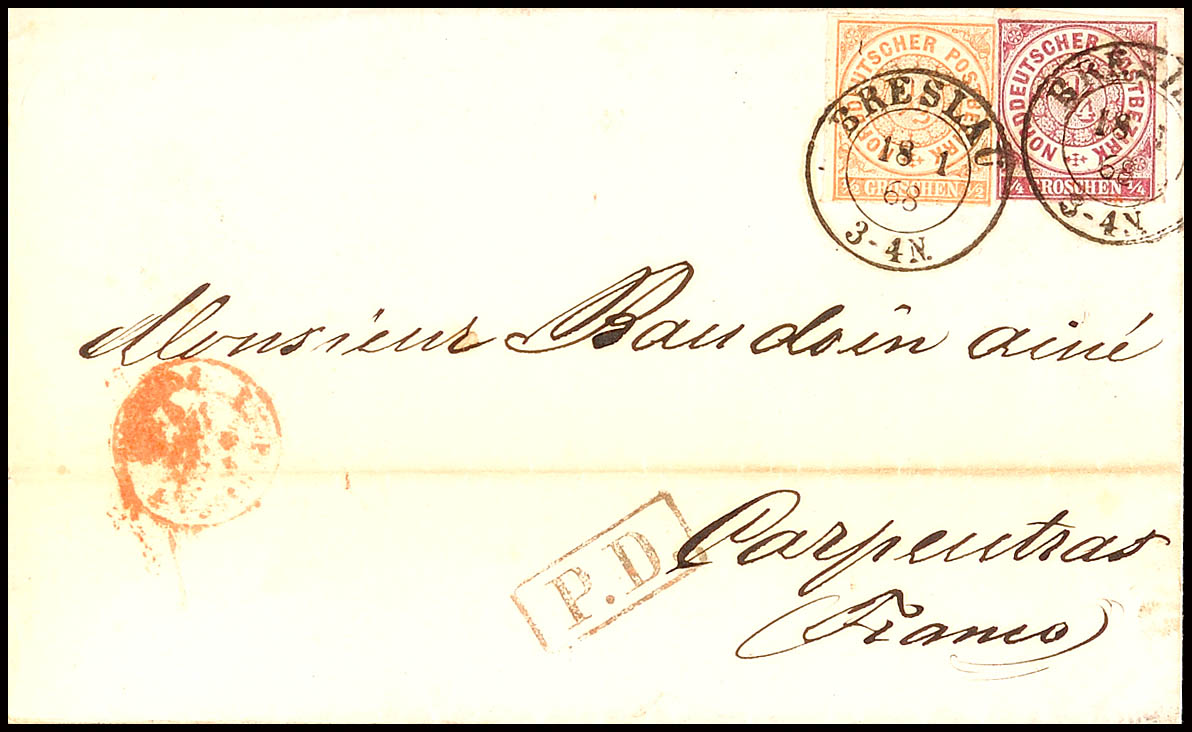 NORDDEUTSCHER POSTBEZIRK
½ GROSCHEN ½
NORDDEUTSCHER POSTBEZIRK
¼ GROSCHEN ¼
BRESLAU
18 1
68
3-4N.
18
68
3-4N.
Monsieur Baudoin ainé
P.D.
Carpentras
(Franco)